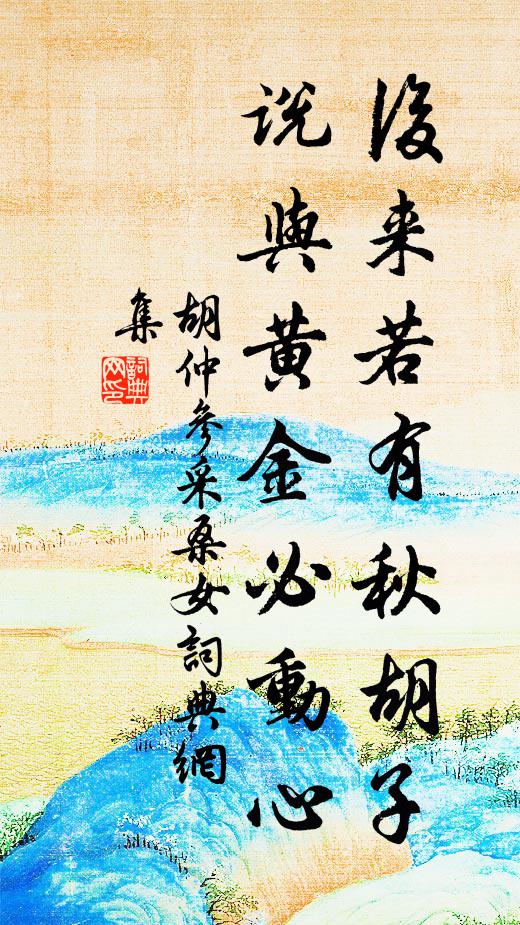 後来若有秋胡子
説與黄金必動心
胡仲參采桑女詞典網
集
詞典
网印